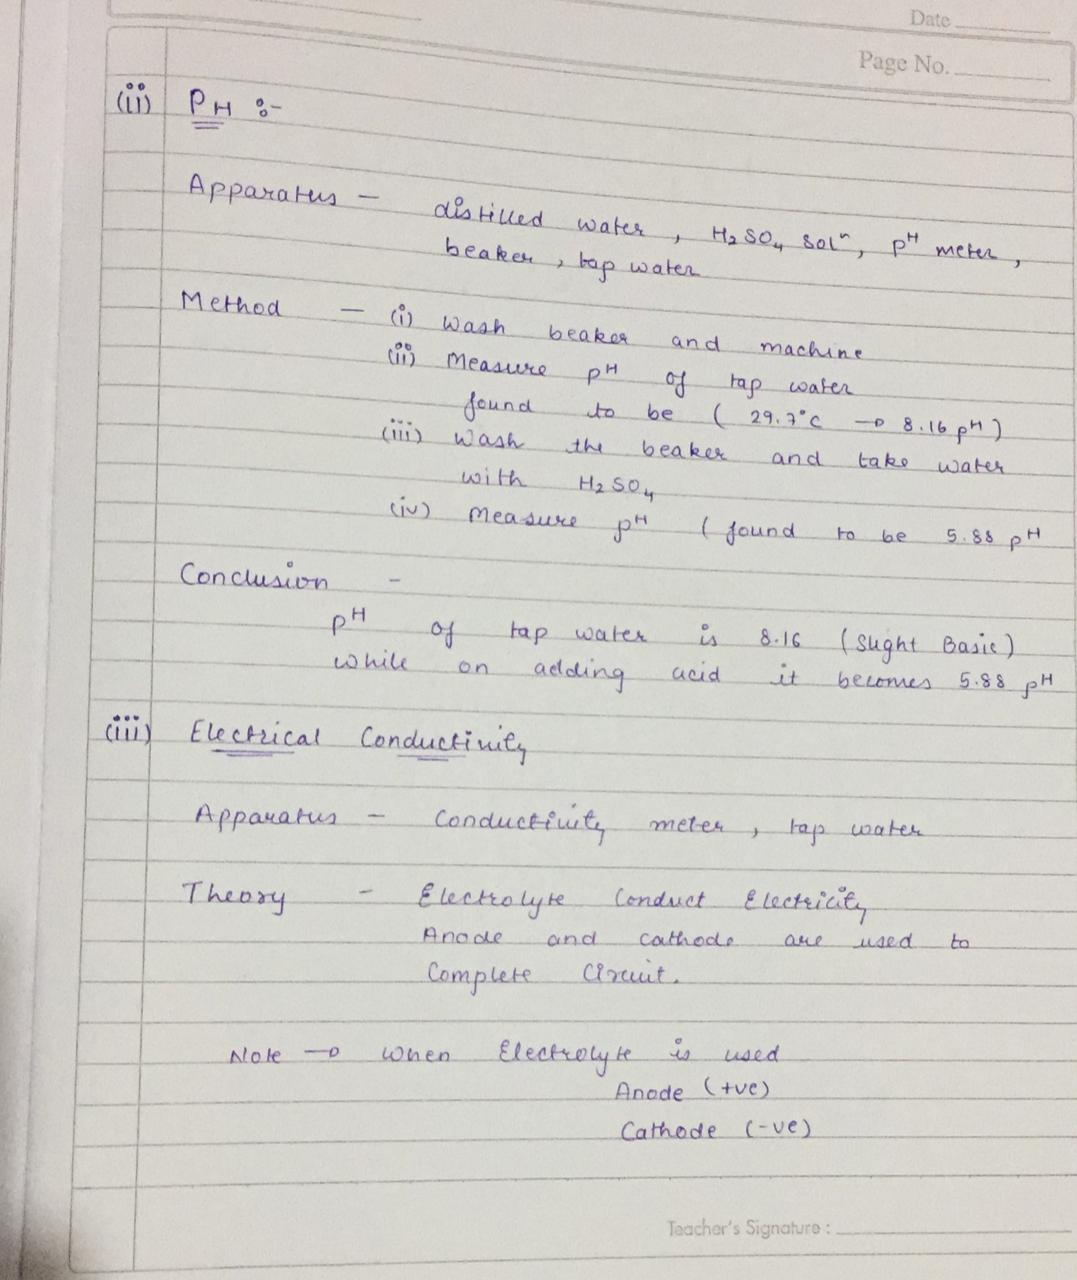 Date
Page No.
(ii) PH :-
Apparatus - distilled water, H₂SO₄ solⁿ, pᴴ meter,
beaker, tap water
Method - (i) Wash beaker and machine
(ii) Measure pᴴ of tap water
found to be ( 29.7°C → 8.16 pᴴ )
(iii) Wash the beaker and take water
with H₂SO₄
(iv) Measure pᴴ ( found to be 5.88 pᴴ
Conclusion -
pᴴ of tap water is 8.16 (Slight Basic)
while on adding acid it becomes 5.88 pᴴ
(iii) Electrical Conductivity
Apparatus - Conductivity meter, tap water
Theory - Electrolyte Conduct Electricity
Anode and cathode are used to
Complete Circuit.
Note → When Electrolyte is used
Anode (+ve)
Cathode (-ve)
Teacher's Signature :